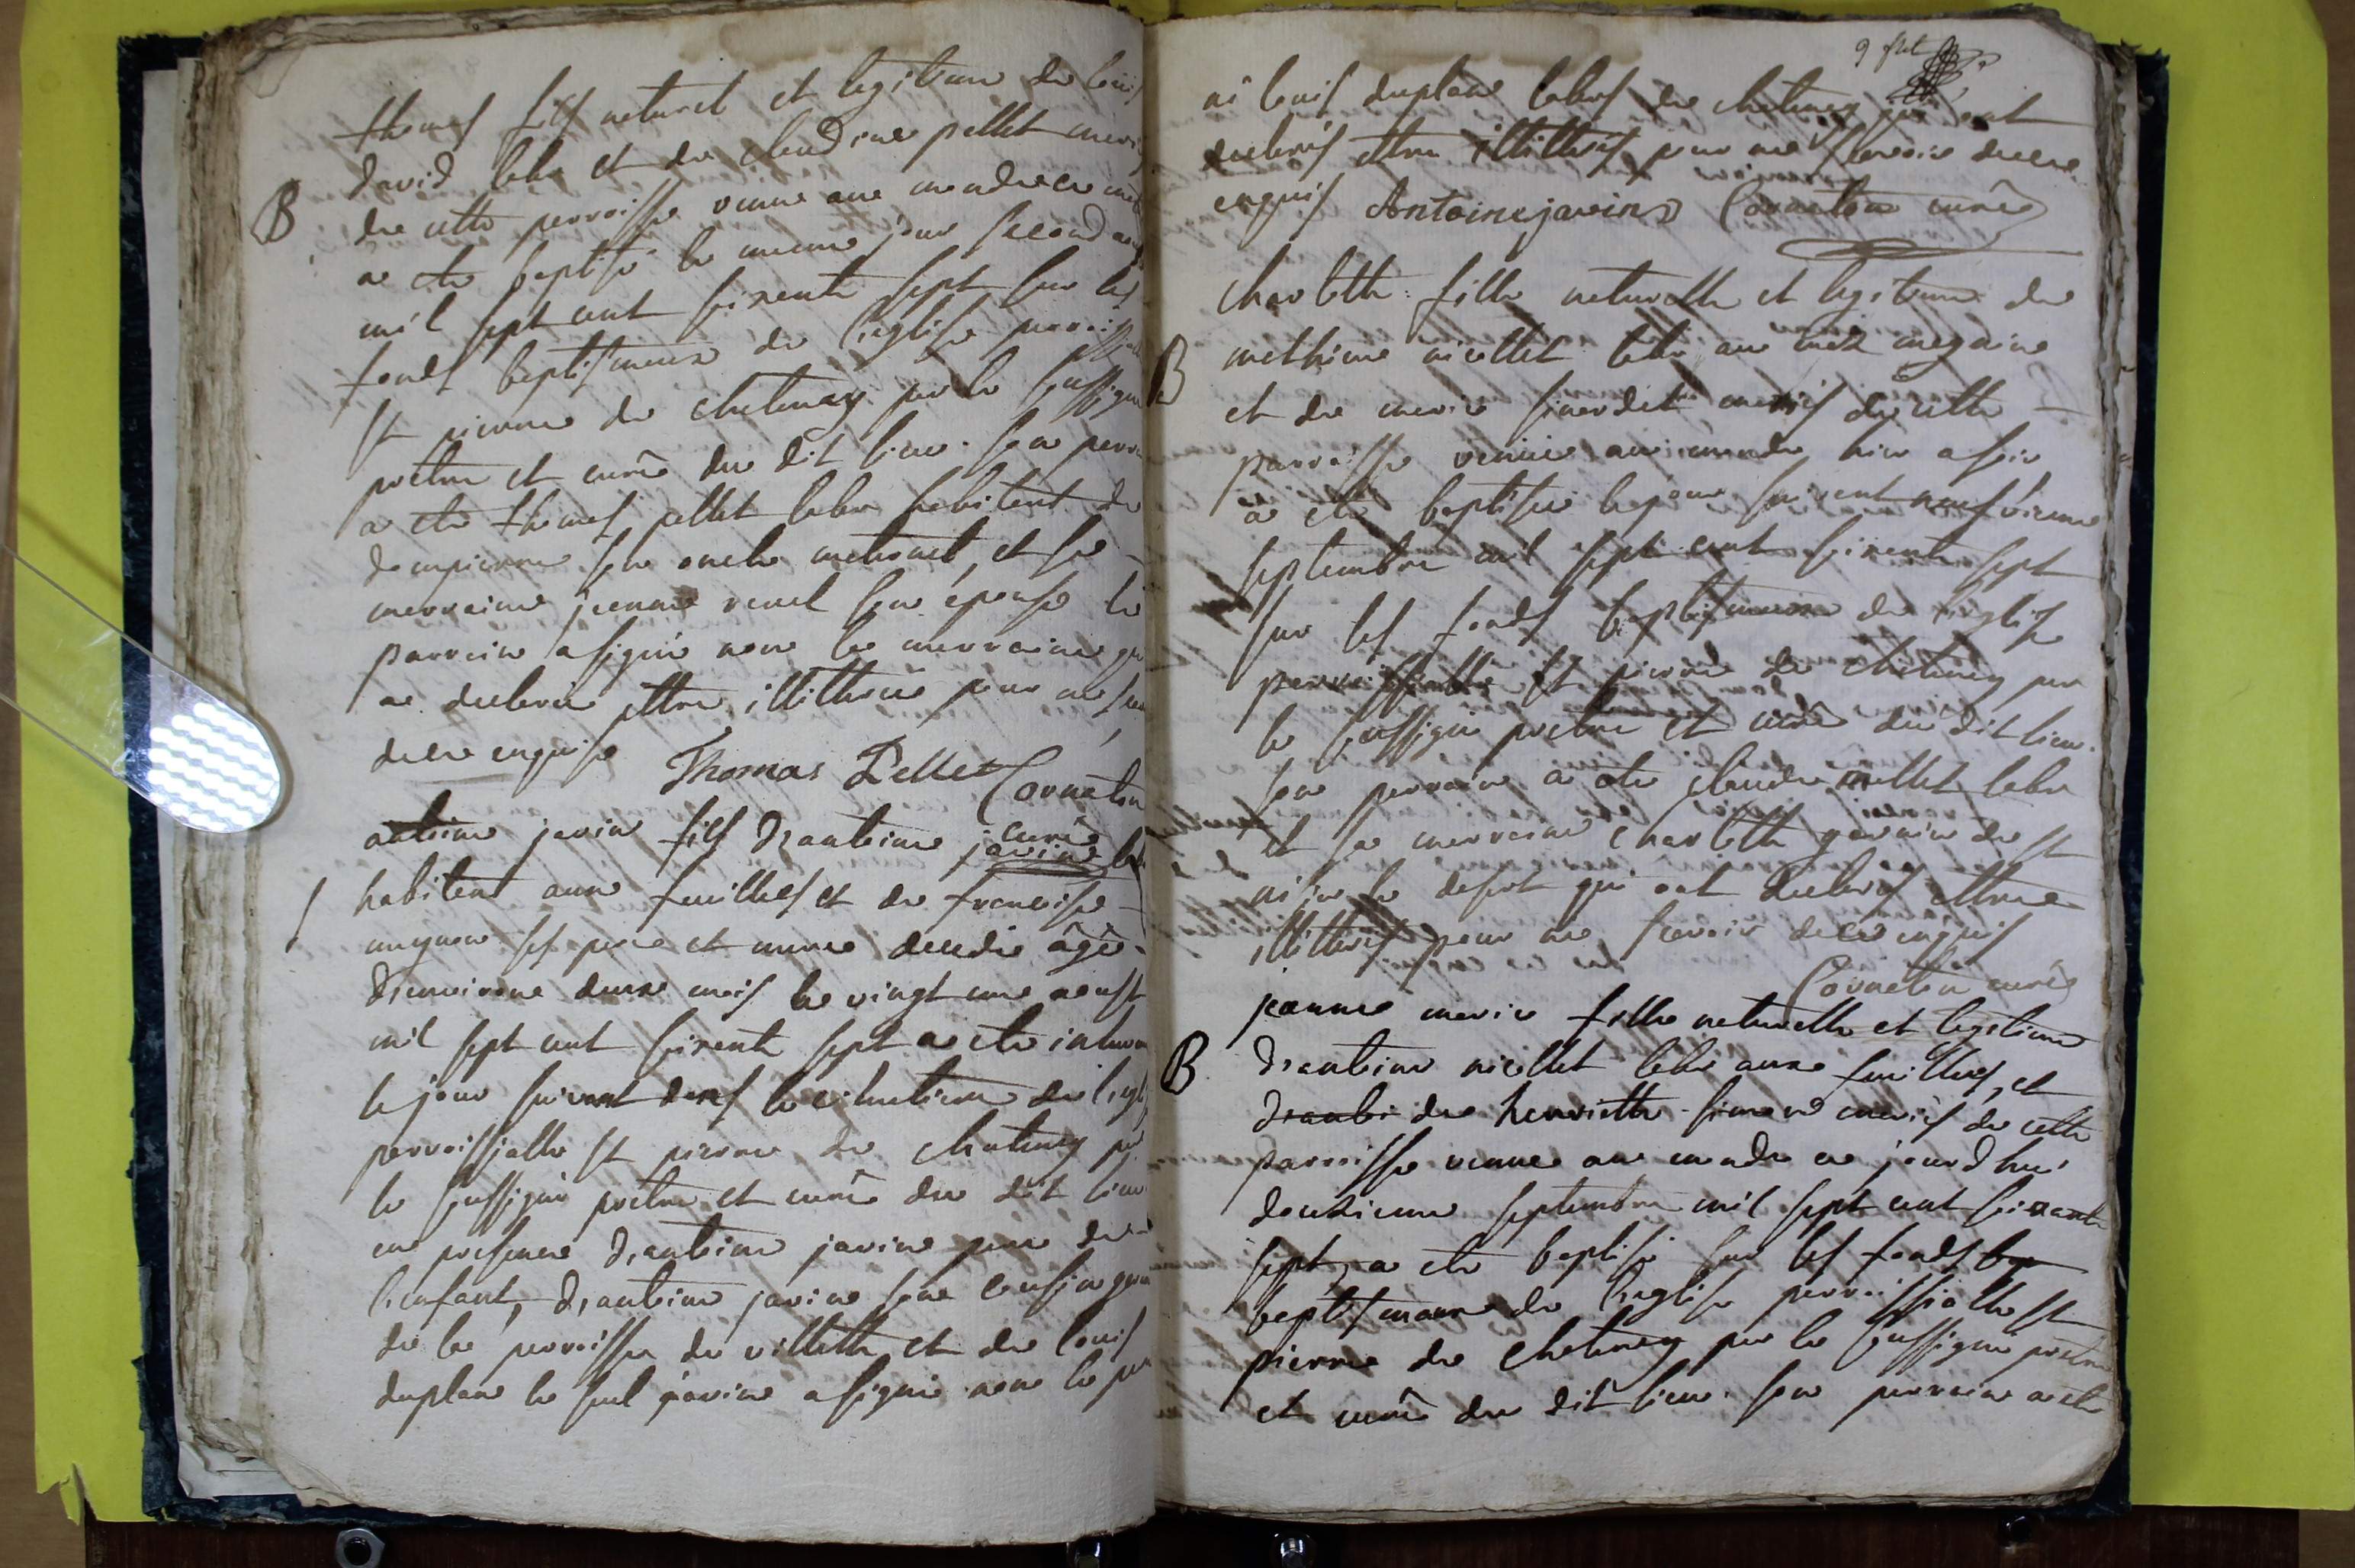 thomas fils naturel et legitime de louis
david labr et de claudine pellet mari
B de cette parroisse venu au monde et
a ete baptisé le meme jour second aoust
mil sept cent soixente sept sur les
fonds baptismeaux de l'eglise parroissi
St pierre de chatenay par le soussigné
prêtre et curé du dit lieu. son parra
a ete thomas pellet labr habitant de
dompierre son oncle maternel, et sa
marraine jeanne son épouse le
parrain a signé non la marraine qu
a declaree ettre illiteree pour ne sca
de ce enquise Thomas Pellet Cornaton
curé
antoine javin fils d'antoine javin lab
S habitant aux feuillees et de francoise
ses pere et mere decedé âgé
d'environ deux mois le vingt un aoust
mil sept cent soixente sept a ete inhum
le jour suivant dans le cimetiere de l'egl
parroissialle St pierre de chatenay par
le soussigné prêtre et curé du dit lieu
en presence d'antoine javin pere de
l'enfant, d'antoine javin son cousin germ
de la parroisse de villette et de louis
duplan le seul javin a signé non le per
9 flet
ni louis duplan labrs de chatenay qui ont
declarés ettre illiterés pour ne scavoir de ce
enquis Antoine javin Cornaton curé
charlotte fille naturelle et legitime de
B mathieu nicollet labr au
et de marie mariés de cette
parroisse venüe au monde hier a soir
a ete baptisée le jour suivent neufvieme
septembre mil sept cent soixente sept
sur les fonds baptismeaux de l'eglise
parroissialle St pierre de chatenay par
le soussigné prêtre et curé du dit lieu.
son parrain a ete claude millet labr
et sa marraine charlotte de St
nisier le desert qui ont declarés ettre
illiterés pour ne scavoir de ce enquis
Cornaton curé
jeanne marie fille naturelle et legitime
B d'antoine nicollet labr aux feuillees, et
de henriette mariés de cette
parroisse venue au monde ce jourd'hui
douzieme septembre mil sept cent soixante
sept, a ete baptisé sur les fonds
baptismaux de l'eglise parroissialle St
pierre de chatenay par le soussigné prêtre
et curé du dit lieu. son parrain a ete